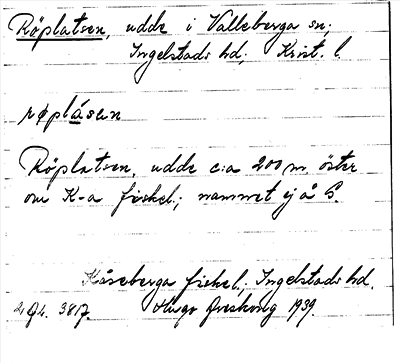 Röplatsen, udde i Valleberga sn;
Ingelstads hd, Krist. l.
røplásen
Röplatsen, udde c:a 200 m. öster
om K-a fiskel.; namnet ej å G.
Kåseberga fiskel., Ingelstads hd.
2 Gh. 387. Hugo Areskoug 1939.